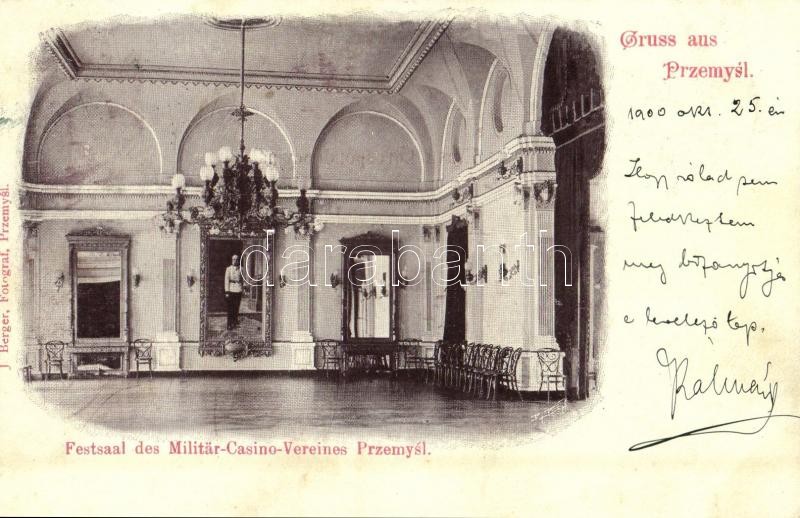 Gruss aus
Przemyśl.
1900 okt. 25.én
Hogy rólad sem
feledkeztem
meg bizonyítja
e levelező lap.
Kálmán
J Berger, Fotograf, Przemyśl.
darabanth
Festsaal des Militär-Casino-Vereines Przemyśl.